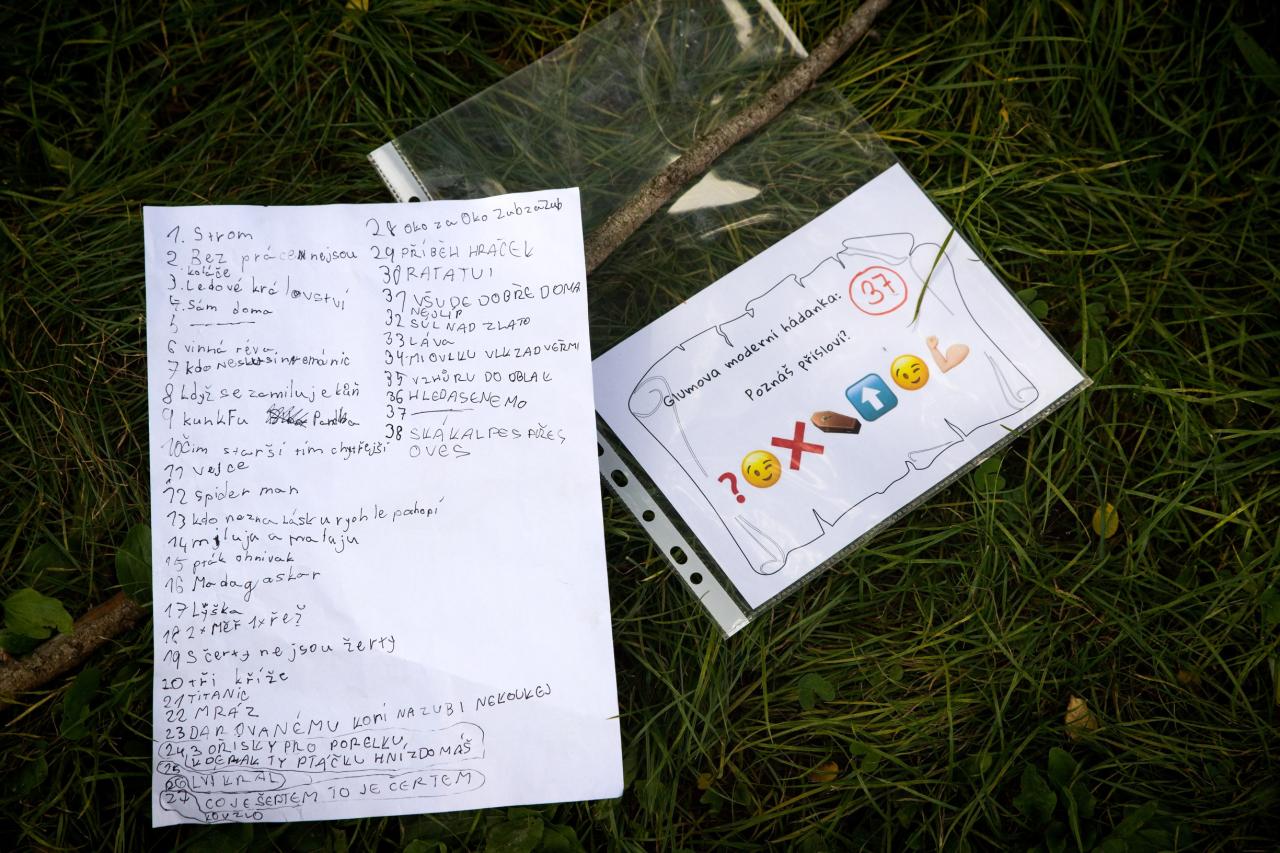 1. Strom
2. Bez práce nejsou
koláže
3. Ledové království
4. Sám doma
5
6 vinná réva
7 kdo
8 když se zamiluje kůň
9 kunkFu Panda
10 Čím starší tím chytřejší
11 vejce
12 spider man
13 kdo nezna lásku rychle pohopí
14 miluju a maluju
15 pták ohnivak
16 Madagaskar
17 Lyška
18 2x Měř 1x řež
19 S čerty nejsou žerty
20 tři kříže
21 TITANIC
22 MRÁZ
23 DAROVANÉMU KONI NA ZUBI NEKOUKEJ
24 3 OŘISKY PRO POPELKU
25 KDEPAK TY PTÁČKU HNÍZDO MÁŠ
26 LVI KRAL
27 CO JE ŠEPTEM TO JE ČERTEM
KOUZLO
28 oko za Oko Zub za Zub
29 PŘÍBĚH HRAČEK
30 RATATUI
31 VŠUDE DOBŘE DOMA
NEJLIP
32 SŮL NAD ZLATO
33 LÁVA
34 MI O VLKU VLK ZA DVEŘMI
35 VZHŮRU DO OBLAK
36 HLEDA SE NEMO
37
38 SKÁKAL PES PŘES
OVES
Glumova moderní hádanka:
37
Poznáš přísloví?
?